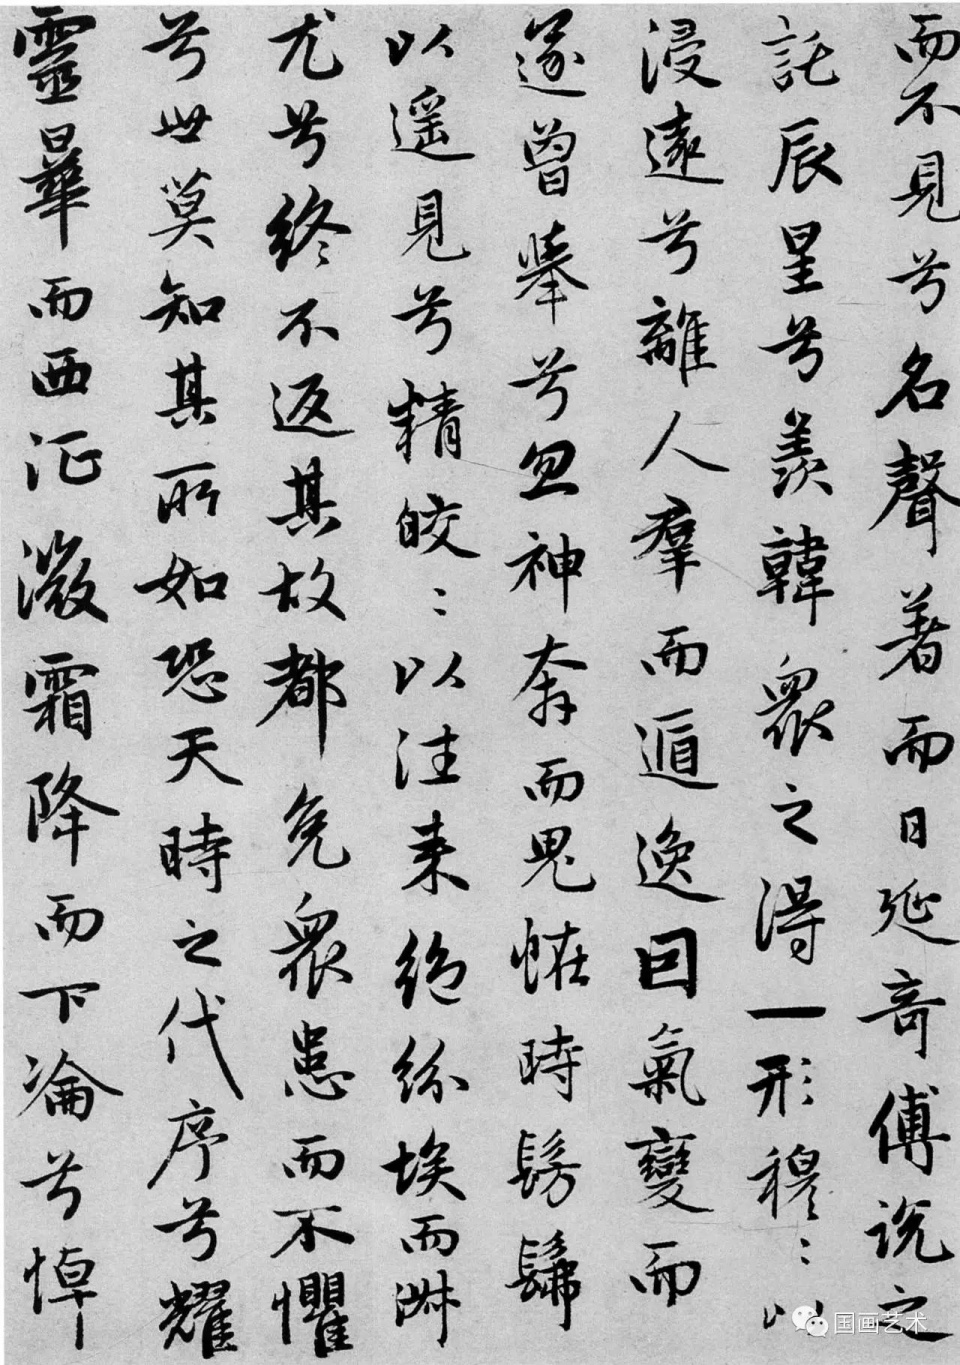 而不見兮名聲著而日延奇傅說之
託辰星兮羨韓衆之得一形穆〻以
浸遠兮離人羣而遁逸因氣變而
遂曾舉兮忽神奔而鬼恠時髣髴
以遥見兮精皎〻以往来絶紛埃而淑
尤兮終不返其故都免衆患而不懼
兮世莫知其所如恐天時之代序兮耀
靈曅而西征微霜降而下淪兮悼
国画艺术